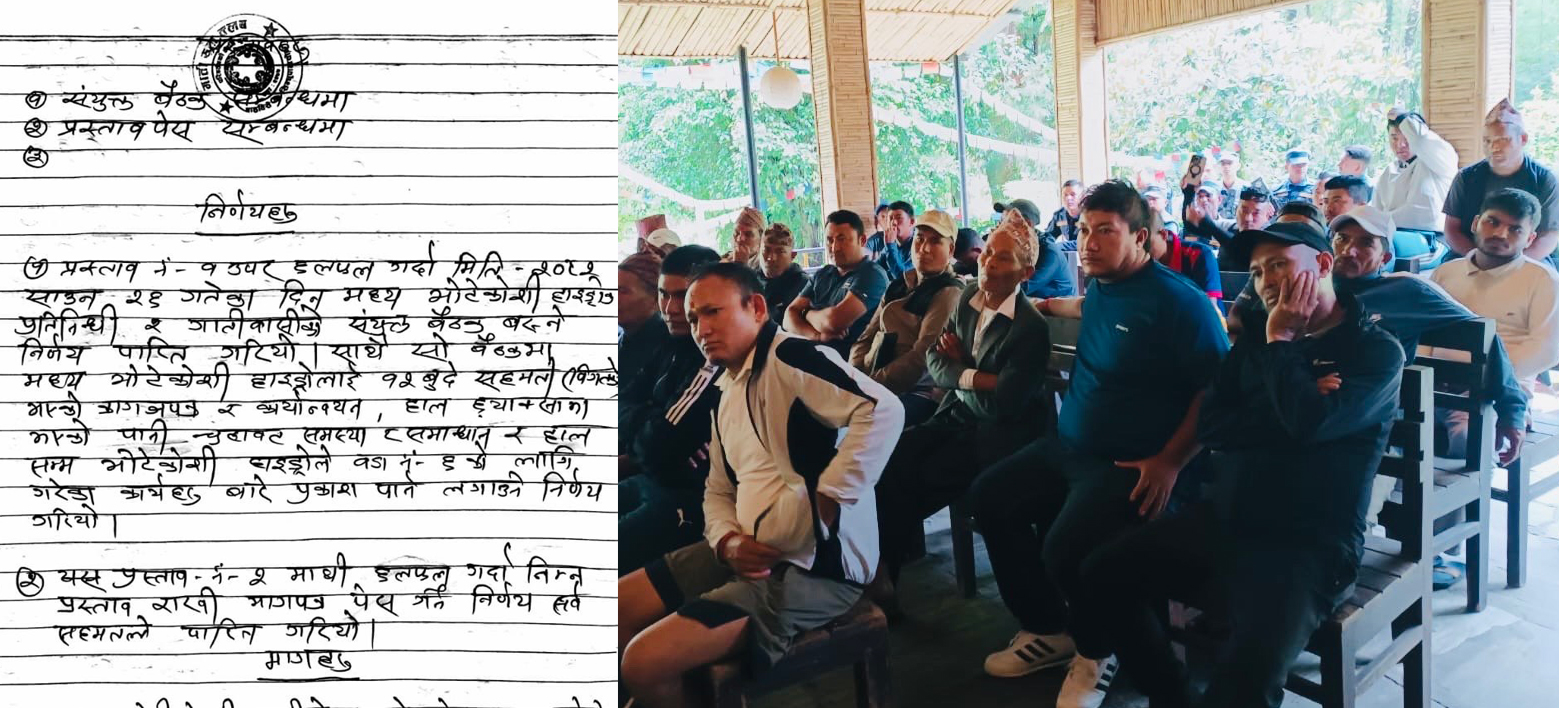 १ संयुक्त बैठक सम्बन्धमा
२ प्रस्ताव पेस सम्बन्धमा
३
निर्णयहरु
१ प्रस्ताव नं- १ उपर छलफल गर्दा मिति - २०८२
साउन २६ गतेका दिन मध्य भोटेकोशी हाइड्रो
प्रतिनिधी र जातीवासीको संयुक्त बैठक बस्ने
निर्णय पारित गरियो । साथै सो बैठकमा
मध्य भोटेकोशी हाइड्रोलाई १२ बुदे सहमती (विगतको
भएको कागजपत्र र कार्यान्वयन, हाल ड्याम्समा
भएको पानी चुहावट समस्या र समाधान र हाल
सम्म भोटेकोशी हाइड्रोले वडा नं- ६ को लागि
गरेका कार्यहरु बारे प्रकाश पार्न लगाउने निर्णय
गरियो ।
२ यस प्रस्ताव - नं- २ माथी छलफल गर्दा निम्न
प्रस्ताव राखी मागपत्र पेस गर्ने निर्णय सर्व
सहमतले पारित गरियो ।
मागहरु